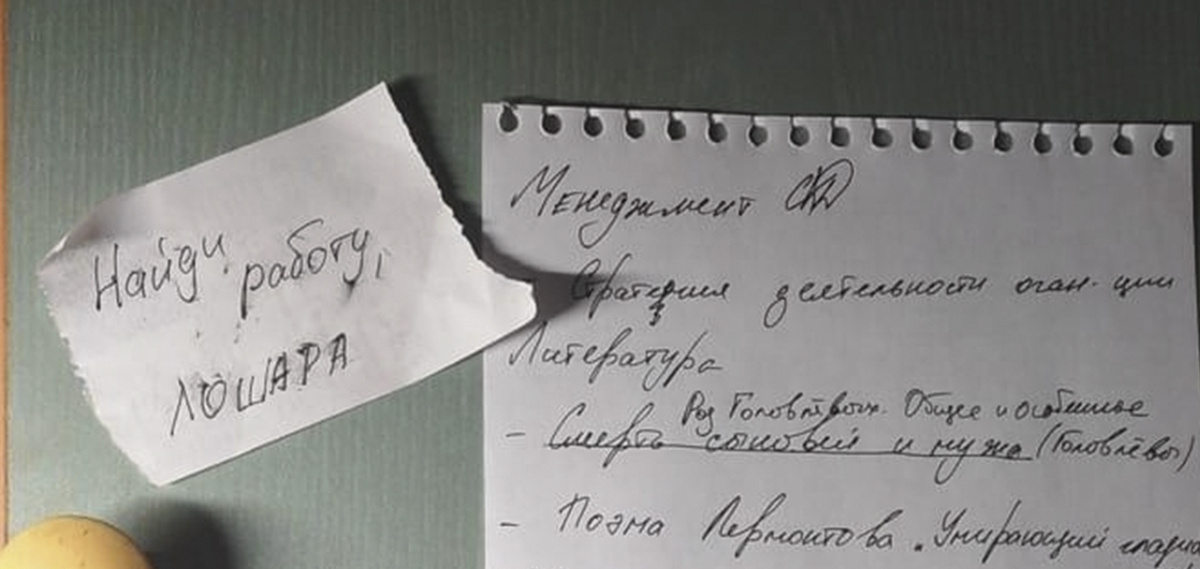 Найди работу,
ЛОШАРА
Менеджмент
Стратегия деятельности оган-ции
Литература
Род Головлёвых. Общее и особенное
- Смерть сыновей и мужа (Головлёвы)
- Поэма Лермонтова "Умирающий гладиа